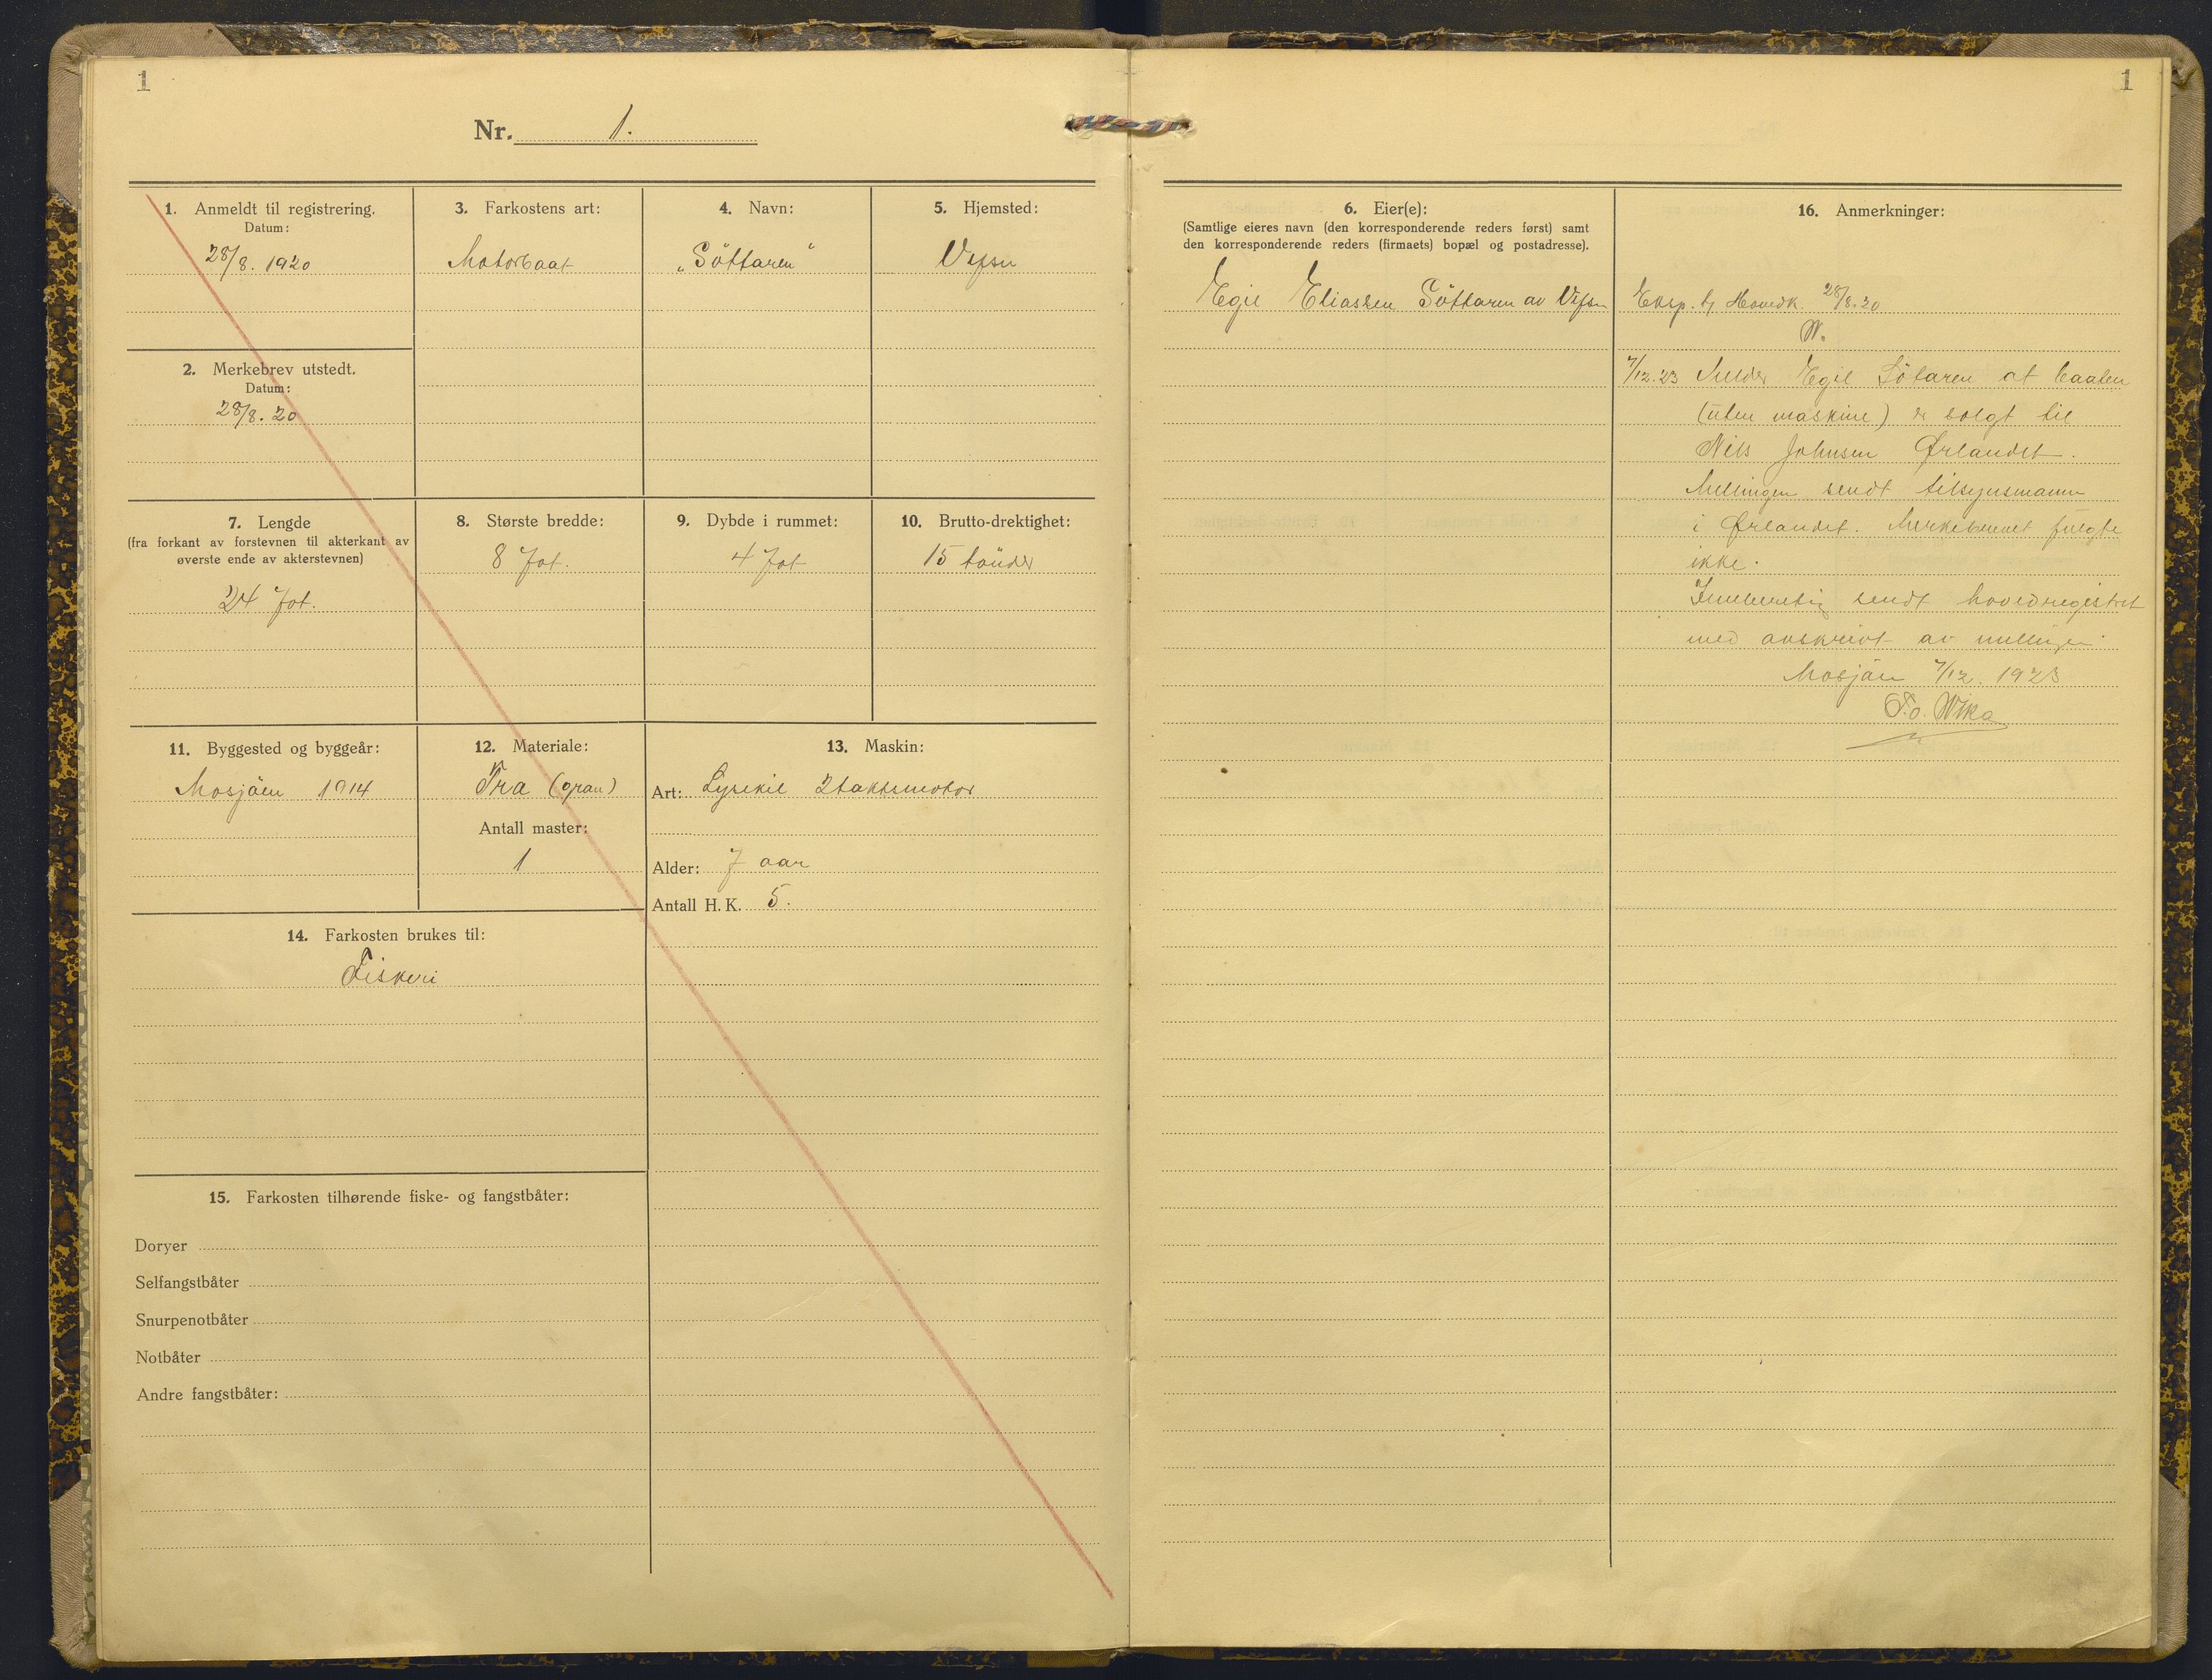 1
Nr. 1.
1. Anmeldt til registrering.
Datum:
28/8. 1920
2. Merkebrev utstedt.
Datum:
28/8. 20
3. Farkostens art:
Motorbaat
4. Navn:
„Söttaren"
5. Hjemsted:
Vefsn
7. Lengde
(fra forkant av forstevnen til akterkant av
øverste ende av akterstevnen)
24 Fot.
8. Største bredde:
8 Fot.
9. Dybde i rummet:
4 Fot
10. Brutto-drektighet:
15 tönder
11. Byggested og byggeår:
Mosjöen 1914
12. Materiale:
Træ (gran)
Antall master:
1
13. Maskin:
Art: Lysekil 2taktsmotor
Alder: 7 aar
Antall H. K. 5.
14. Farkosten brukes til:
Fiskeri
15. Farkosten tilhørende fiske- og fangstbåter:
Doryer
Selfangstbåter
Snurpenotbåter
Notbåter
Andre fangstbåter:
1
6. Eier(e):
(Samtlige eieres navn (den korresponderende reders først) samt
den korresponderende reders (firmaets) bopæl og postadresse).
Egil Eliassen Söttaren av Vefsn
16. Anmerkninger:
Eksp. t/ Hovedk. 28/8.20
W.
7/12.23 Melder Egil Sötaren at baaten
(uten maskine) er solgt til
Nils Johnsen Ørlandet.
Mellingen sendt tilsynsmann
i Ørlandet. Merkebrevet fulgte
ikke.
sendt hovedregistret
med avskrivt av mellingen
Mosjöen 7/12. 1923
P.O. Wika